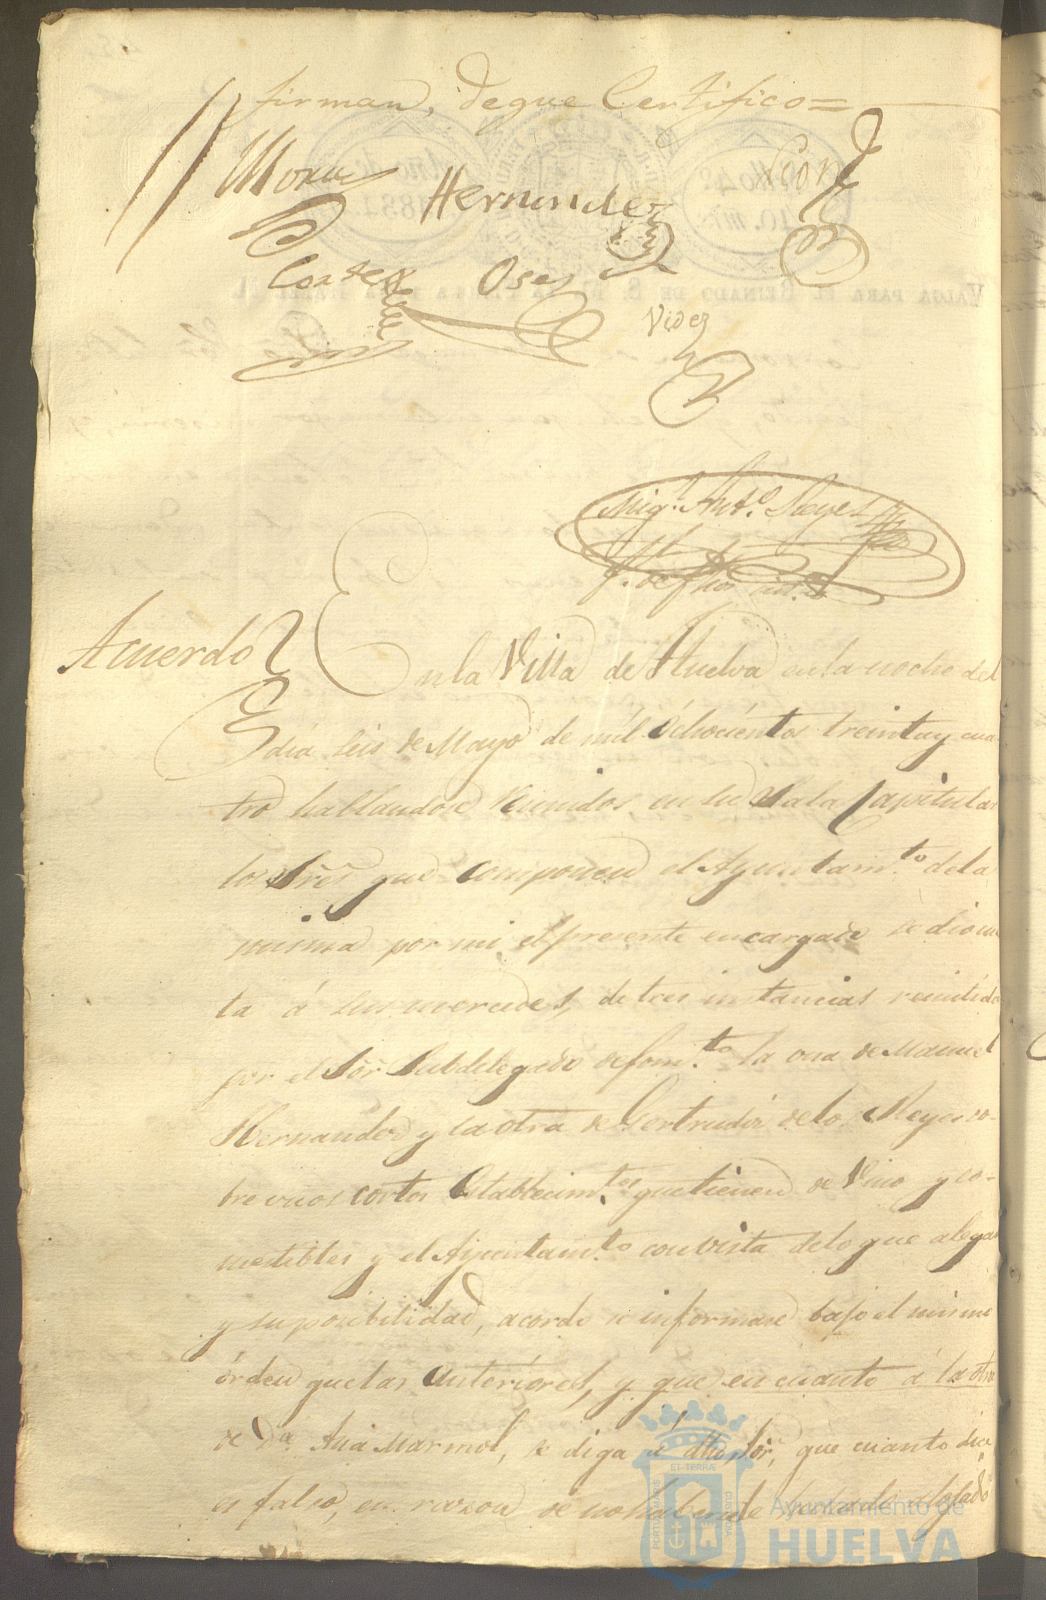 firman, de que Certifico=
Mora
Hernandez
Cortes
Oses
Videz
Mig.l Ant.o Reyes
Acuerdo
En la Villa de Huelva en la noche del
dia seis de Mayo de mil ochocientos treinta y cua
tro hallandose reunidos en su Sala Capitular
los Sres que componen el Ayuntam.to de la
misma por mi el presente encargado se dio cu
ta á sus mercedes, de tres instancias remitida
por el Sor Subdelegado de fom.to la una de Manuel
Hernandez y la otra de Gertrudis de los Reyes so-
bre unos cortos Establecim.tos que tienen de Vino y co-
mestibles y el Ayuntam.to con vista de lo que alegan
y su posibilidad, acordo se informase bajo el mismo
órden que las anteriores, y que en cuanto á la otra
de D.a Ana Marmol, se diga á dho Sor, que cuanto dice
es falso, en razon de no habersele
Ayuntamiento de
HUELVA